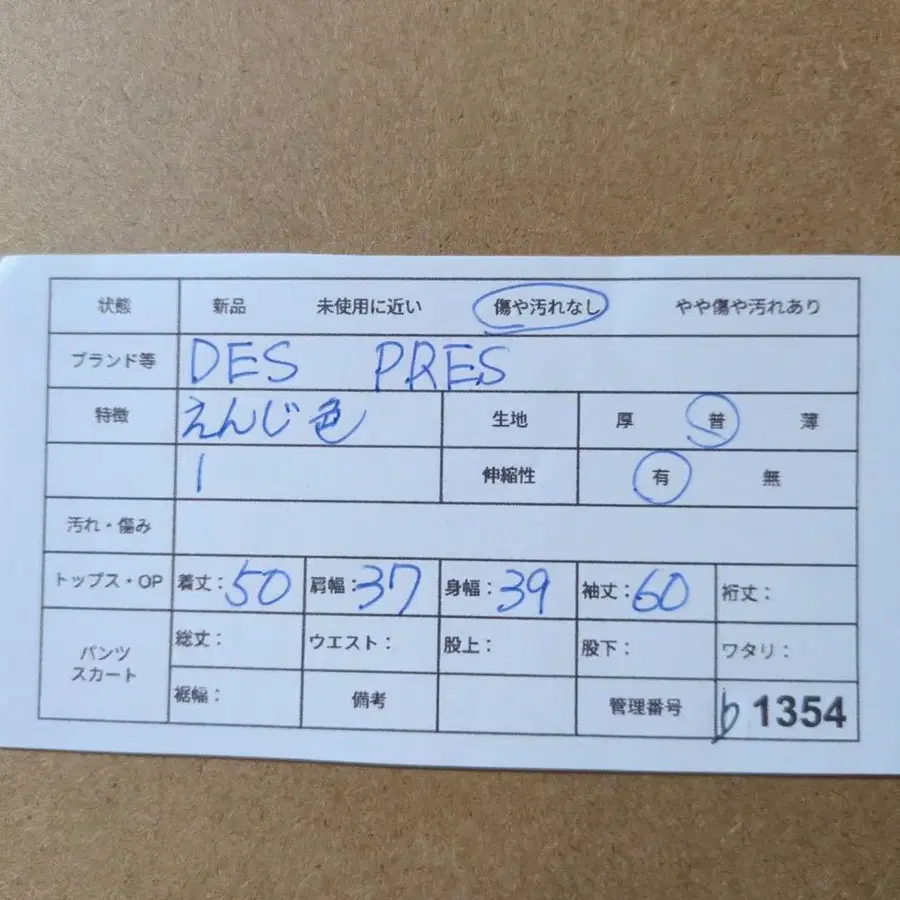 状態 新品 未使用に近い 傷や汚れなし やや傷や汚れあり
ブランド等 DES PRES
特徴 えんじ色 生地 厚 普 薄
1 伸縮性 有 無
汚れ・傷み
トップス・OP 着丈：50 肩幅：37 身幅：39 袖丈：60 裄丈：
パンツ スカート 総丈： ウエスト： 股上： 股下： ワタリ：
裾幅： 備考 管理番号 b 1354